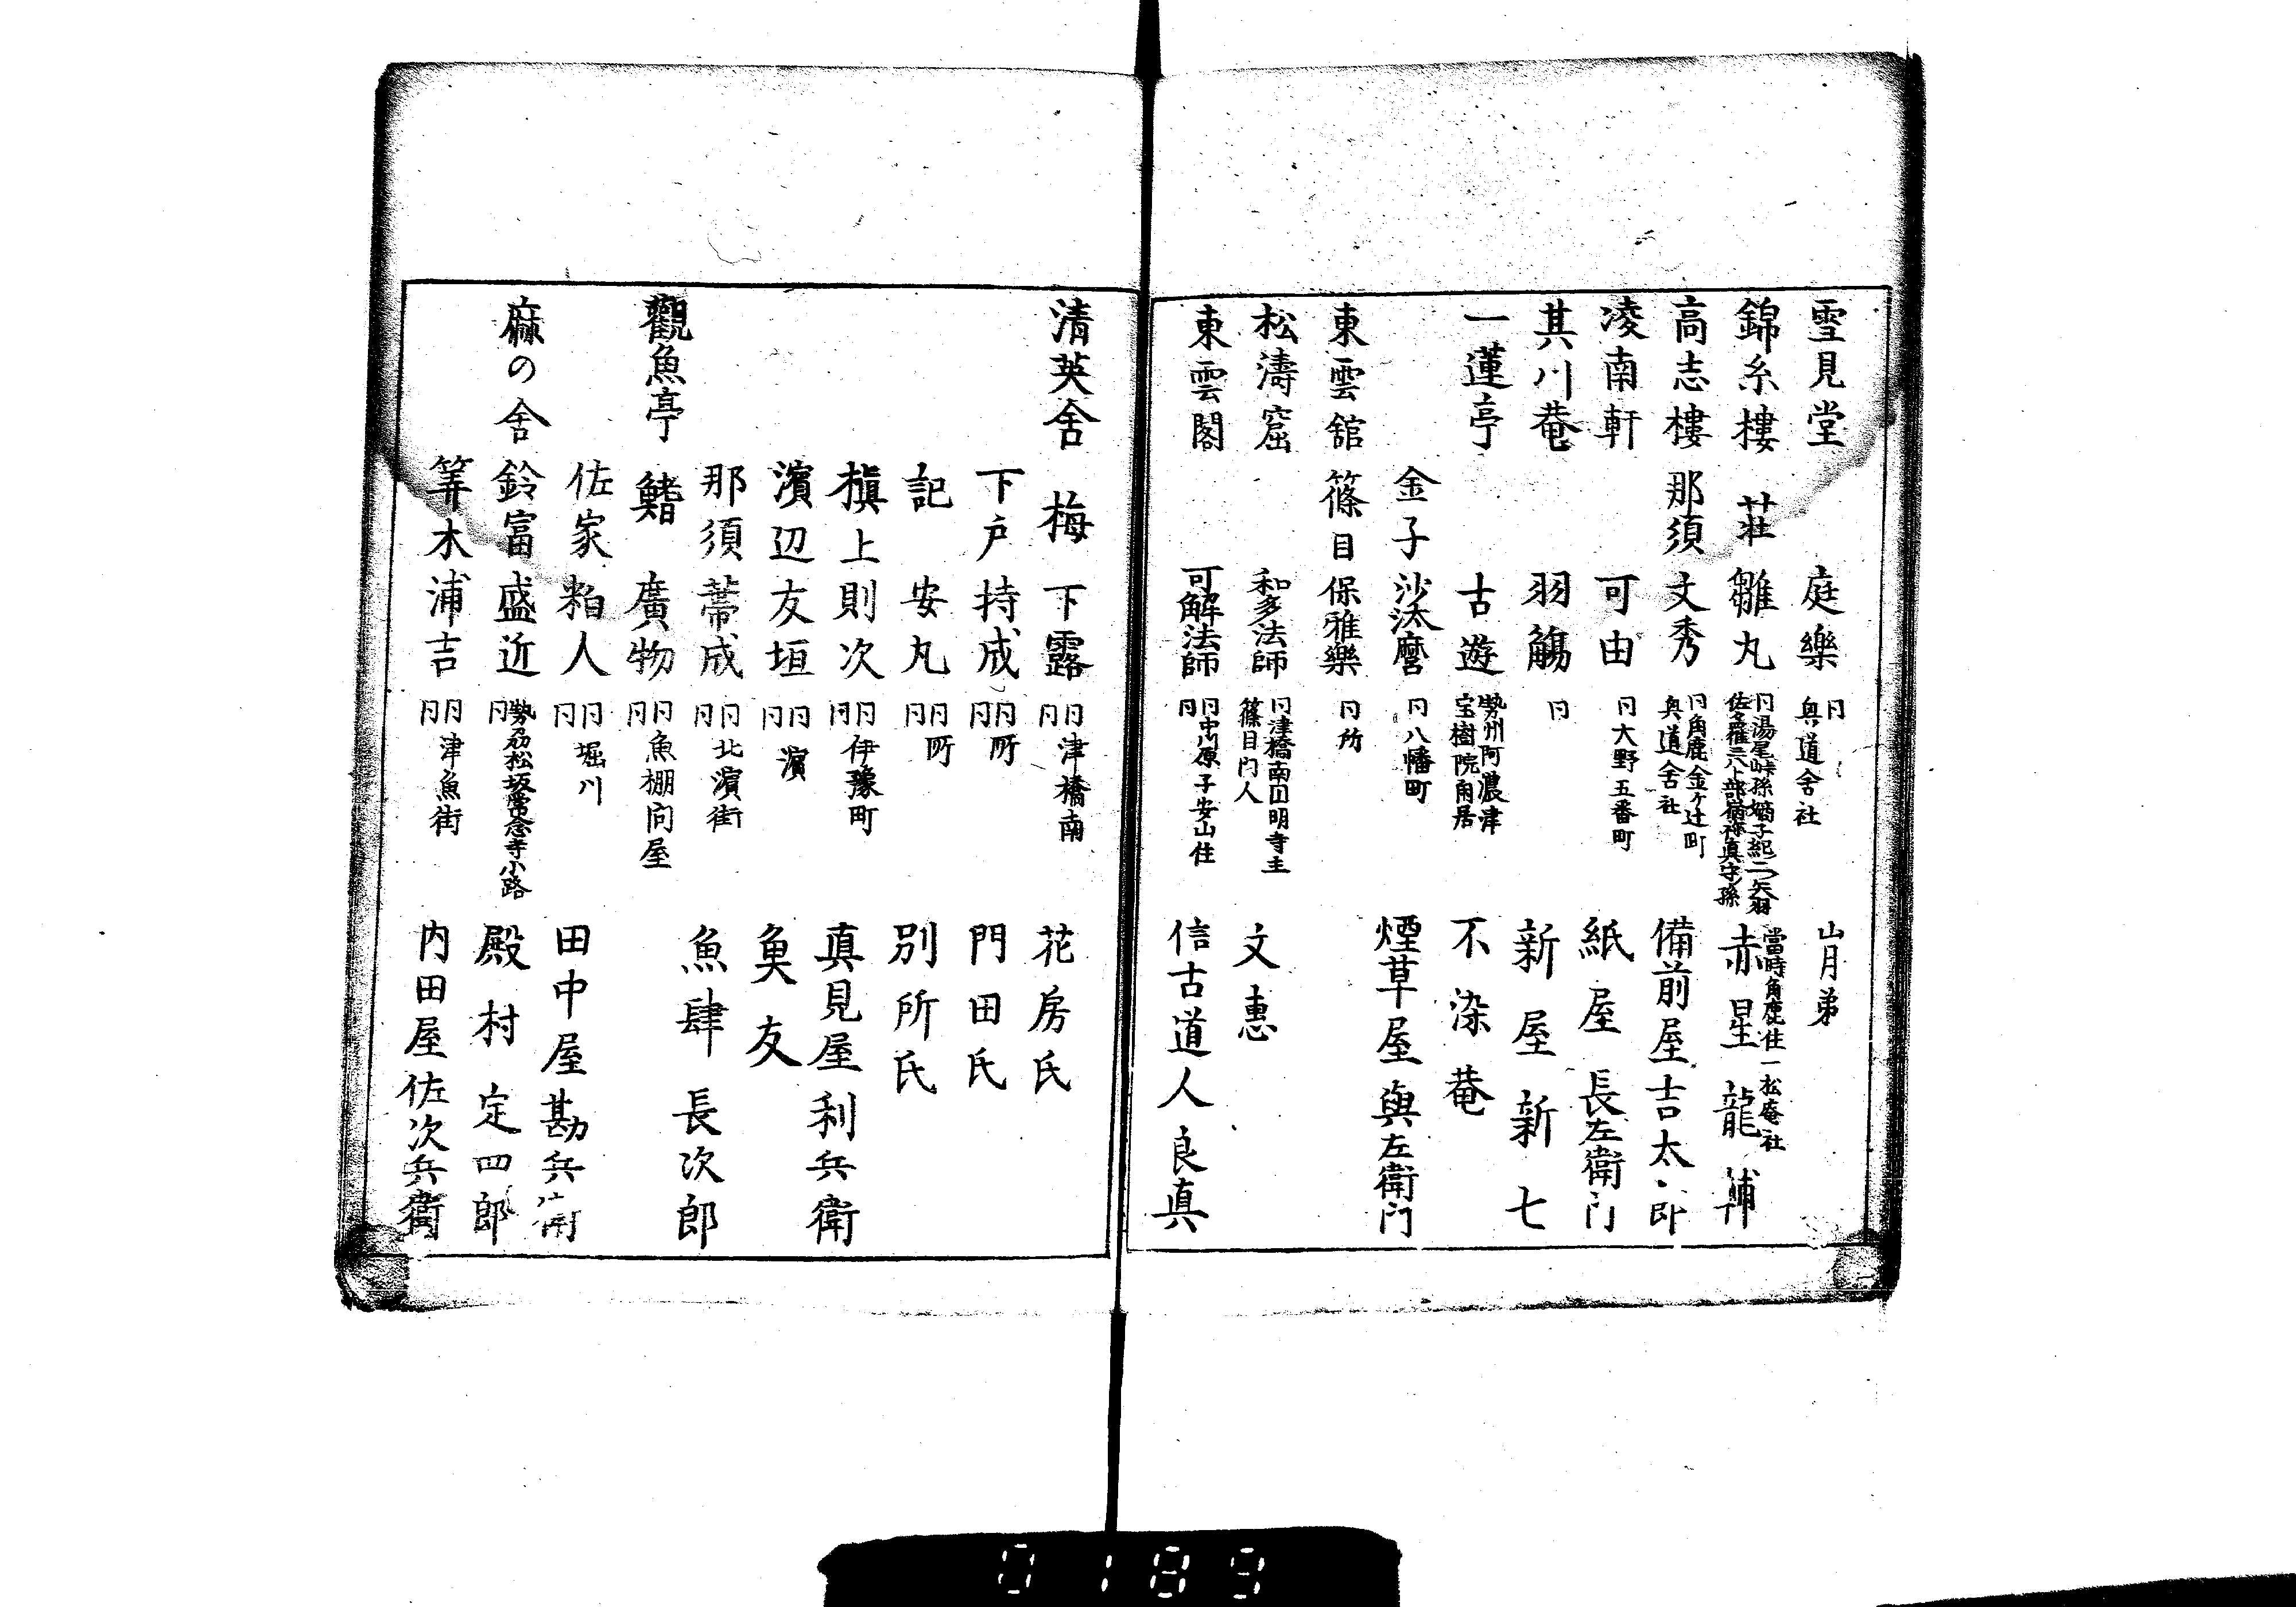 雪見堂 庭樂 仝 奥道舍社 山月弟
錦糸樓 荘 雛丸 仝湯尾峠孫嫡子紀二つ矢羽 佐々羅三上部猶祢真守孫 當時角鹿住一松庵社 赤星龍輔
高志樓 那須 文秀 仝角鹿金ケ辻町 奥道舍社 備前屋吉太郎
凌南軒 可由 仝大野五番町 紙屋長左衛门
其川菴 羽觴 仝 新屋新七
一蓮亭 古遊 勢州阿濃津 宝樹院角居 不染菴
金子 沙汰麿 仝八幡町 煙草屋與左衛门
東雲舘 篠目 保雅樂 仝所
松濤窟 和多法師 仝津橋南 明寺主 篠目门人 文惠
東雲閣 可解法師 仝中川原子安山住 仝 信古道人良真
清英舍 梅 下露 仝津橋南 仝 花房氏
下戸 持成 仝所 仝 門田氏
記 安丸 仝所 仝 別所氏
槙上 則次 仝伊豫町 仝 真見屋利兵衛
濱辺 友垣 仝濱 仝 魚友
那須 蔕成 仝北濱街 仝 魚肆長次郎
觀魚亭 鰭 廣物 仝魚棚问屋 仝
佐家 粕人 仝堀川 仝 田中屋勘兵衛
麻の舍 鈴富 盛近 勢刕松坂常念寺小路 仝 殿村定四郎
筭木 浦吉 仝津魚街 仝 内田屋佐次兵衛
0189